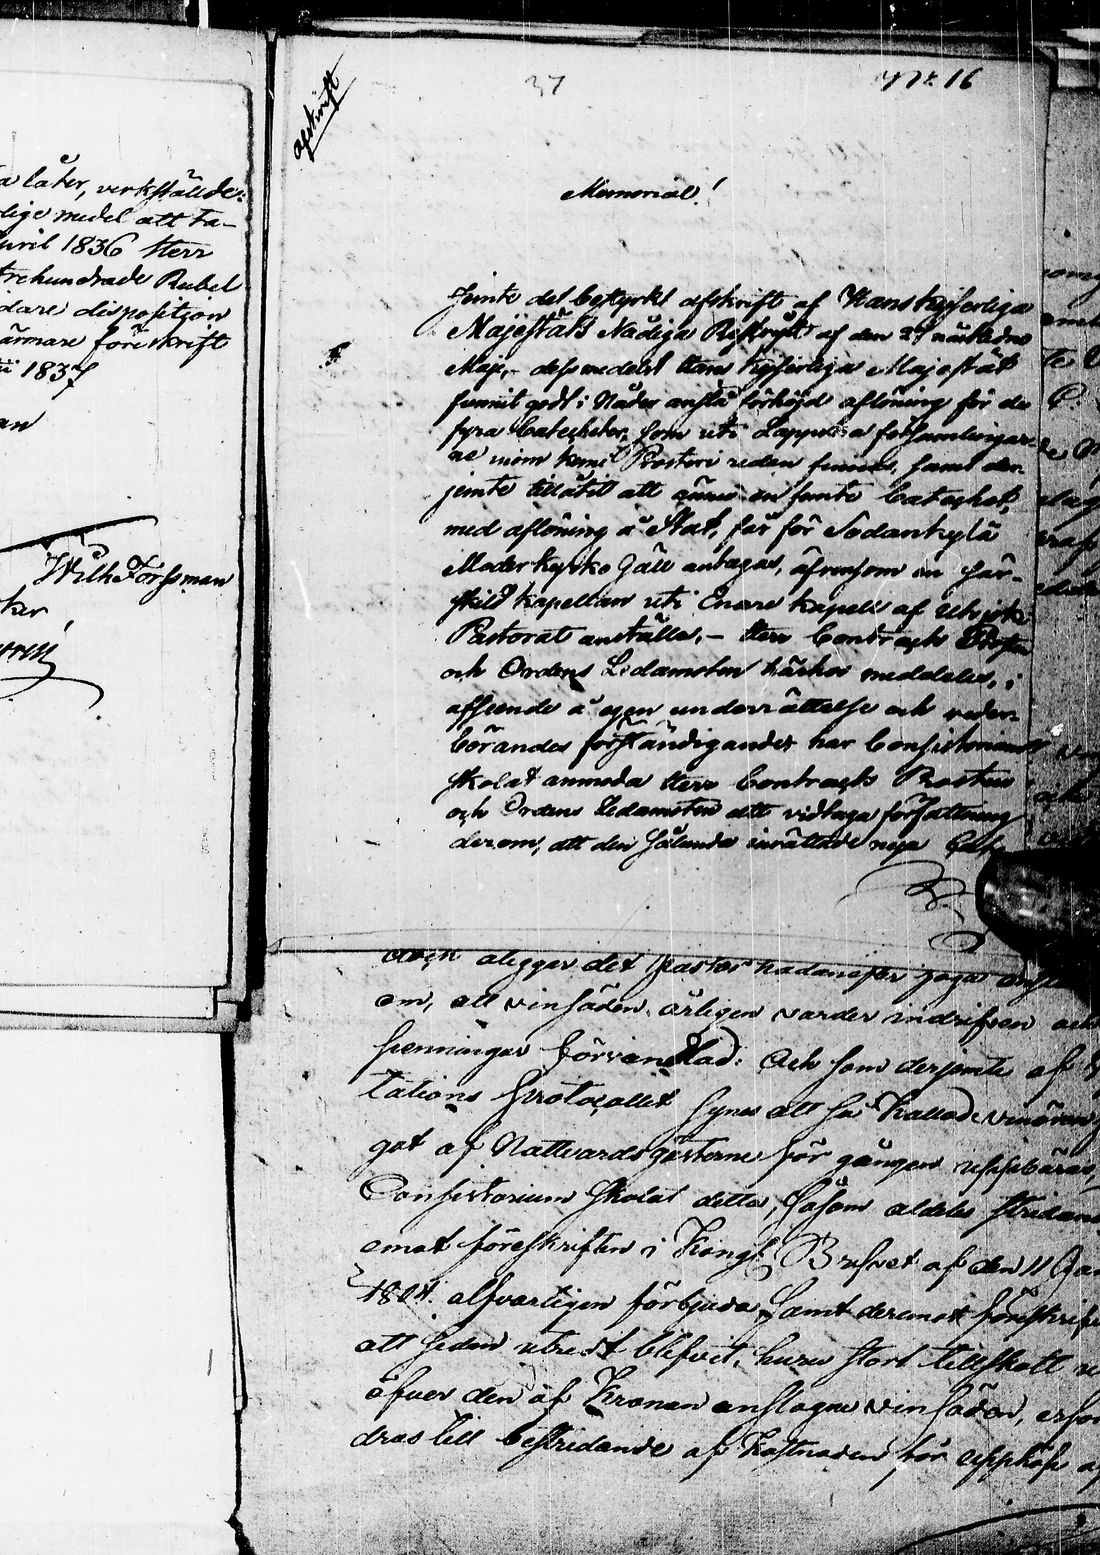 a låter, verkställde:
lige medel att ta-
April 1836 Herr
trehundrade Rubel
dare disposition
ärmare föreskrift
1837
an
Wilh Forssman
ker
afskrift
37
No 16
Memorial!
Jemte det bestyrkt afskrift af Hans Kejserliga
Majestäts Nådiga Reskript af den 29 nästledne
Maji,- dessmedelst Hans Kejserliga Majestät
funnit godt i Nåder anslå förhöjd aflöning för de
fyra Catecheter, som uti Lappska församlingar-
ne inom Kemi Prosteri redan finnas, samt der-
jemte tillåtit att ännu en femte Catechet,
med aflöning å Stat, får för Sodankylä
Moderkyrko Gäll antagas, äfvensom en sär-
skild Kapellan uti Enare Kapell af Utsjoki
Pastorat anställas,- Herr Contracts Prosten
och Ordens Ledamoten härhos meddelas, i
afseende å egen underrättelse och veder-
börandes förständigande, har Consistorium
skolat anmoda Herr Contracts Prosten
och Ordens Ledamoten att vidtaga författning
derom, att den sålunda inrättade nya
åligger det Pastor hädanefter draga
om, att vinsäden årligen varder indrifven och
penningar förvandlad: Och som derjemte af
tations Protocollet synes att så kallade vinören
gat af Nattvardsgästerne för gången uppbäras,
Consistorium skolat detta, såsom aldeles stridande
emot föreskriften i Kongl. Brefvet af den 11 Jan
1804 alfvarligen förbjuda, samt deremot föreskrifva
att sedan utredt blifvit, huru stort tillskott
öfver den af Kronan anslagne vinsäden, erfor
dras till bestridande af Kostnaden för uppköp af